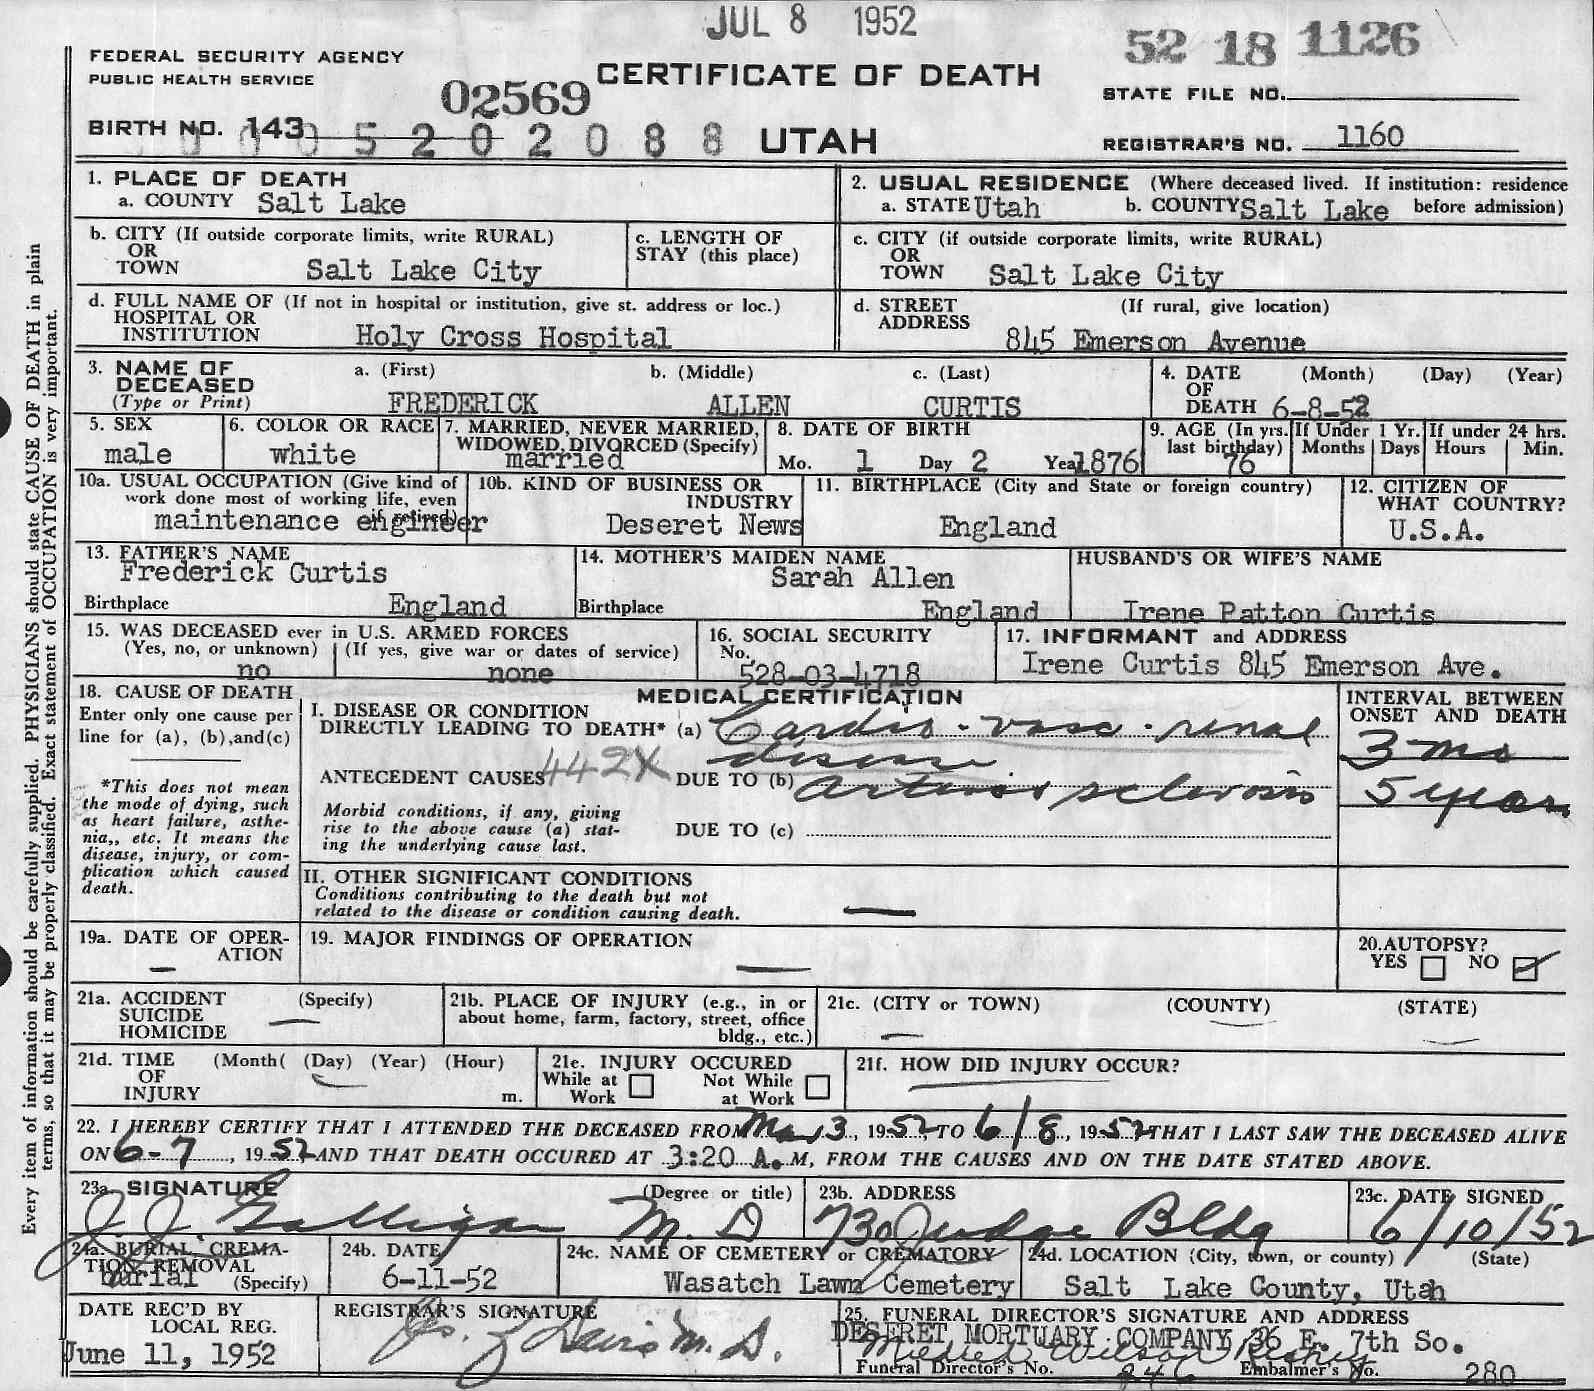 JUL 8 1952
52 18 1126
FEDERAL SECURITY AGENCY
PUBLIC HEALTH SERVICE
02569
CERTIFICATE OF DEATH
STATE FILE NO.
BIRTH NO. 143
0005202088
UTAH
REGISTRAR'S NO. 1160
1. PLACE OF DEATH
a. COUNTY Salt Lake
2. USUAL RESIDENCE (Where deceased lived. If institution: residence
a. STATE Utah b. COUNTY Salt Lake before admission)
b. CITY (If outside corporate limits, write RURAL)
OR
TOWN Salt Lake City
c. LENGTH OF
STAY (this place)
c. CITY (if outside corporate limits, write RURAL)
OR
TOWN Salt Lake City
d. FULL NAME OF (If not in hospital or institution, give st. address or loc.)
HOSPITAL OR
INSTITUTION Holy Cross Hospital
d. STREET (If rural, give location)
ADDRESS 845 Emerson Avenue
3. NAME OF a. (First) b. (Middle) c. (Last)
DECEASED
(Type or Print) FREDERICK ALLEN CURTIS
4. DATE (Month) (Day) (Year)
OF
DEATH 6-8-52
5. SEX
male
6. COLOR OR RACE
white
7. MARRIED, NEVER MARRIED,
WIDOWED, DIVORCED (Specify)
married
8. DATE OF BIRTH
Mo. 1 Day 2 Year 1876
9. AGE (In yrs.
last birthday)
76
If Under 1 Yr.
Months Days
If under 24 hrs.
Hours Min.
10a. USUAL OCCUPATION (Give kind of
work done most of working life, even
if retired)
maintenance engineer
10b. KIND OF BUSINESS OR
INDUSTRY
Deseret News
11. BIRTHPLACE (City and State or foreign country)
England
12. CITIZEN OF
WHAT COUNTRY?
U.S.A.
13. FATHER'S NAME
Frederick Curtis
Birthplace England
14. MOTHER'S MAIDEN NAME
Sarah Allen
Birthplace England
HUSBAND'S OR WIFE'S NAME
Irene Patton Curtis
15. WAS DECEASED ever in U.S. ARMED FORCES
(Yes, no, or unknown) (If yes, give war or dates of service)
no none
16. SOCIAL SECURITY
No.
528-03-4718
17. INFORMANT and ADDRESS
Irene Curtis 845 Emerson Ave.
18. CAUSE OF DEATH
Enter only one cause per
line for (a), (b), and(c)
*This does not mean
the mode of dying, such
as heart failure, asthe-
nia,, etc. It means the
disease, injury, or com-
plication which caused
death.
MEDICAL CERTIFICATION
I. DISEASE OR CONDITION
DIRECTLY LEADING TO DEATH* (a) Cardio-vasc-renal
disease
ANTECEDENT CAUSES 442X DUE TO (b) Arterio sclerosis
Morbid conditions, if any, giving
rise to the above cause (a) stat-
ing the underlying cause last.
DUE TO (c)
INTERVAL BETWEEN
ONSET AND DEATH
3 mo
5 years
II. OTHER SIGNIFICANT CONDITIONS
Conditions contributing to the death but not
related to the disease or condition causing death. —
19a. DATE OF OPER-
ATION
—
19. MAJOR FINDINGS OF OPERATION
—
20. AUTOPSY?
YES NO
21a. ACCIDENT (Specify)
SUICIDE
HOMICIDE —
21b. PLACE OF INJURY (e.g., in or
about home, farm, factory, street, office
bldg., etc.)
21c. (CITY or TOWN) (COUNTY) (STATE)
—
21d. TIME (Month( (Day) (Year) (Hour)
OF
INJURY m.
21e. INJURY OCCURED
While at Work Not While at Work
21f. HOW DID INJURY OCCUR?
22. I HEREBY CERTIFY THAT I ATTENDED THE DECEASED FROM Mar 3, 1952, TO 6/8, 1952 THAT I LAST SAW THE DECEASED ALIVE
ON 6-7, 1952 AND THAT DEATH OCCURED AT 3:20 A.M, FROM THE CAUSES AND ON THE DATE STATED ABOVE.
23a. SIGNATURE (Degree or title)
J J Galligan M.D
23b. ADDRESS
730 Judge Bldg
23c. DATE SIGNED
6/10/52
24a. BURIAL, CREMA-
TION, REMOVAL
burial (Specify)
24b. DATE
6-11-52
24c. NAME OF CEMETERY or CREMATORY
Wasatch Lawn Cemetery
24d. LOCATION (City, town, or county) (State)
Salt Lake County, Utah
DATE REC'D BY
LOCAL REG.
June 11, 1952
REGISTRAR'S SIGNATURE
Davis M.D.
25. FUNERAL DIRECTOR'S SIGNATURE AND ADDRESS
DESERET MORTUARY COMPANY, 36 E. 7th So.
Mildred Wilson
Funeral Director's No. 846 Embalmer's No. 280
Every item of information should be carefully supplied. PHYSICIANS should state CAUSE OF DEATH in plain
terms, so that it may be properly classified. Exact statement of OCCUPATION is very important.